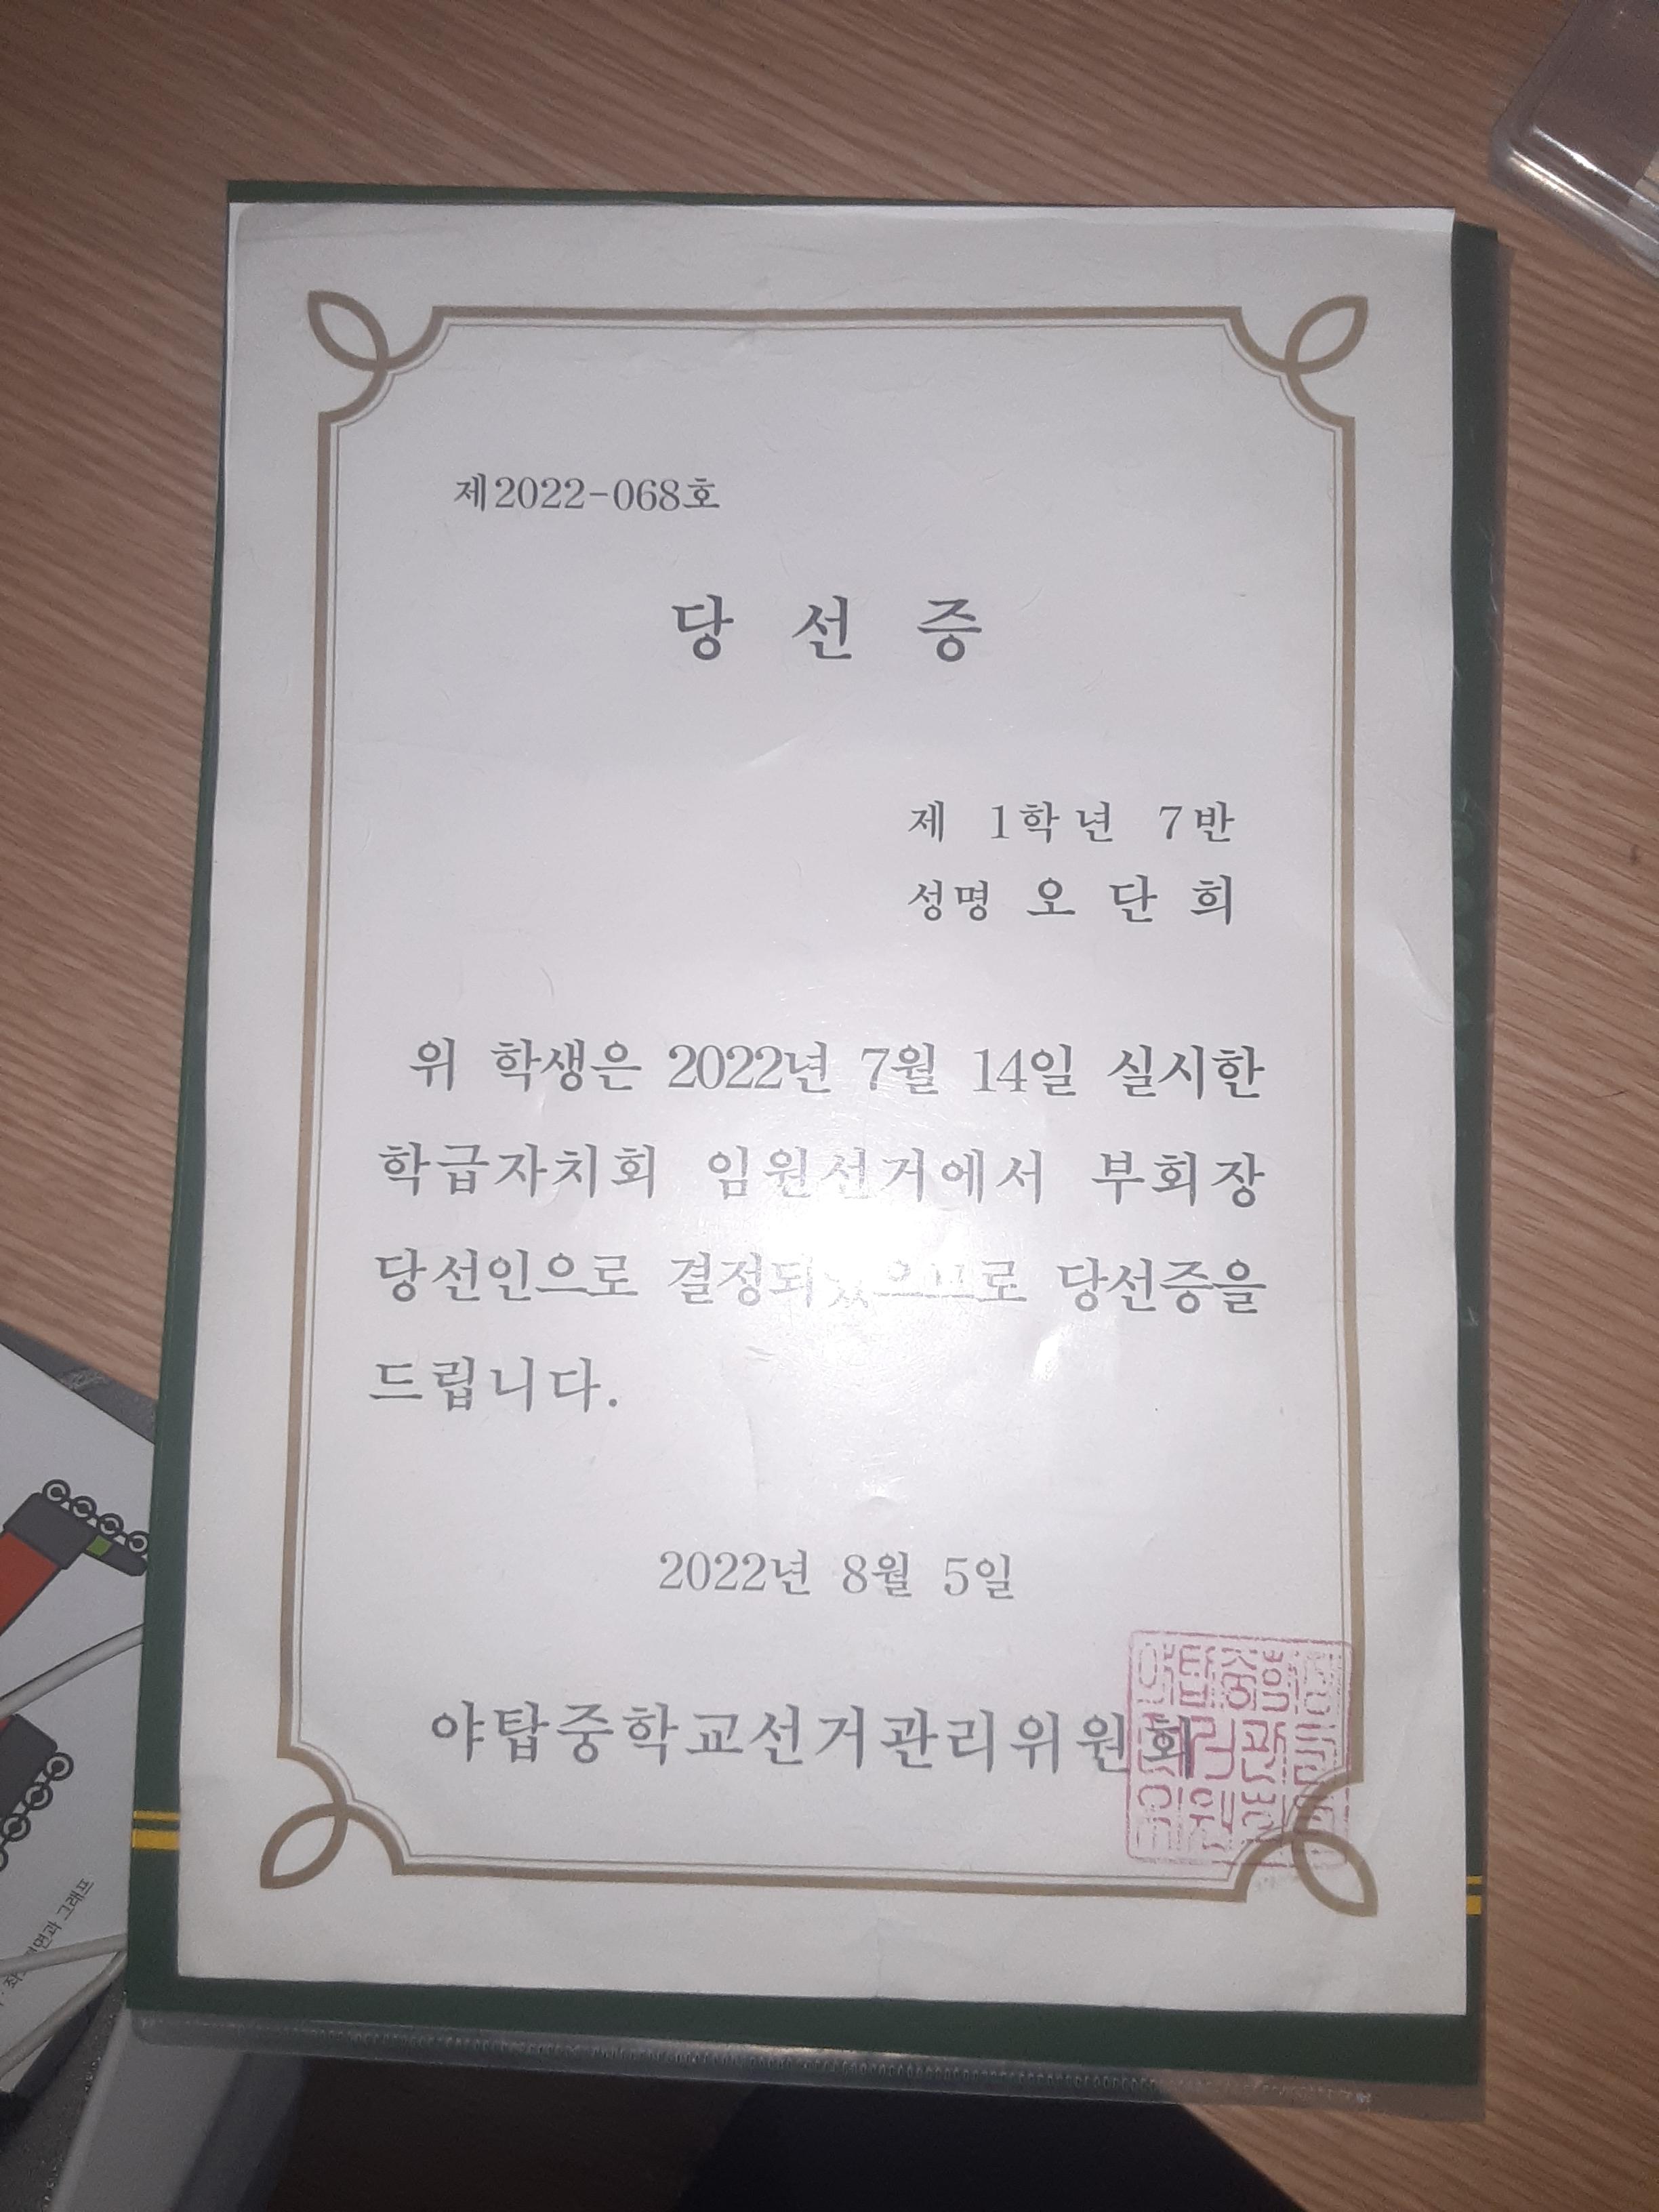 제2022-068호
당 선 증
제 1학년 7반
성명 오 단 희
위 학생은 2022년 7월 14일 실시한
학급자치회 임원선거에서 부회장
당선인으로 결정되었으므로 당선증을
드립니다.
2022년 8월 5일
야탑중학교선거관리위원회
그래프